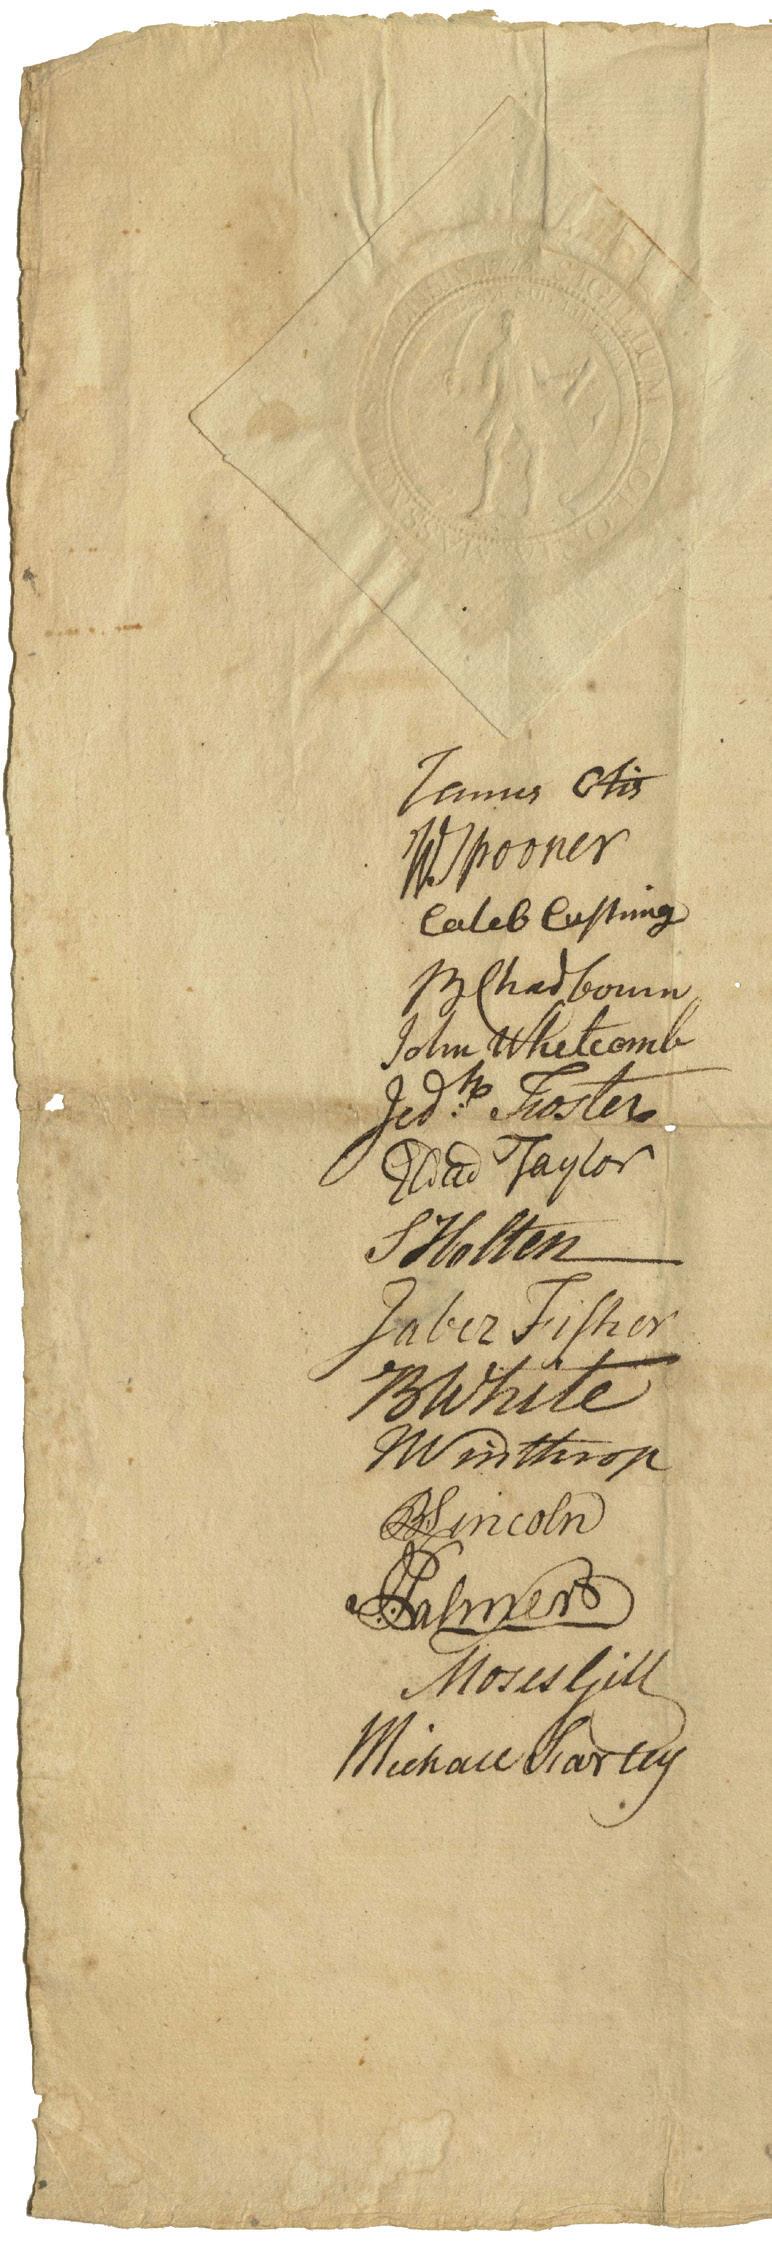 SIGILLUM COLO
MASSA
James Otis
W Spooner
Caleb Cushing
B Chadbourn
John Whetcomb
Jedʰ Foster
Eldad Taylor
S Holten
Jabez Fisher
B White
Winthrop
B Lincoln
J Palmer
Moses Gill
Michael Farley